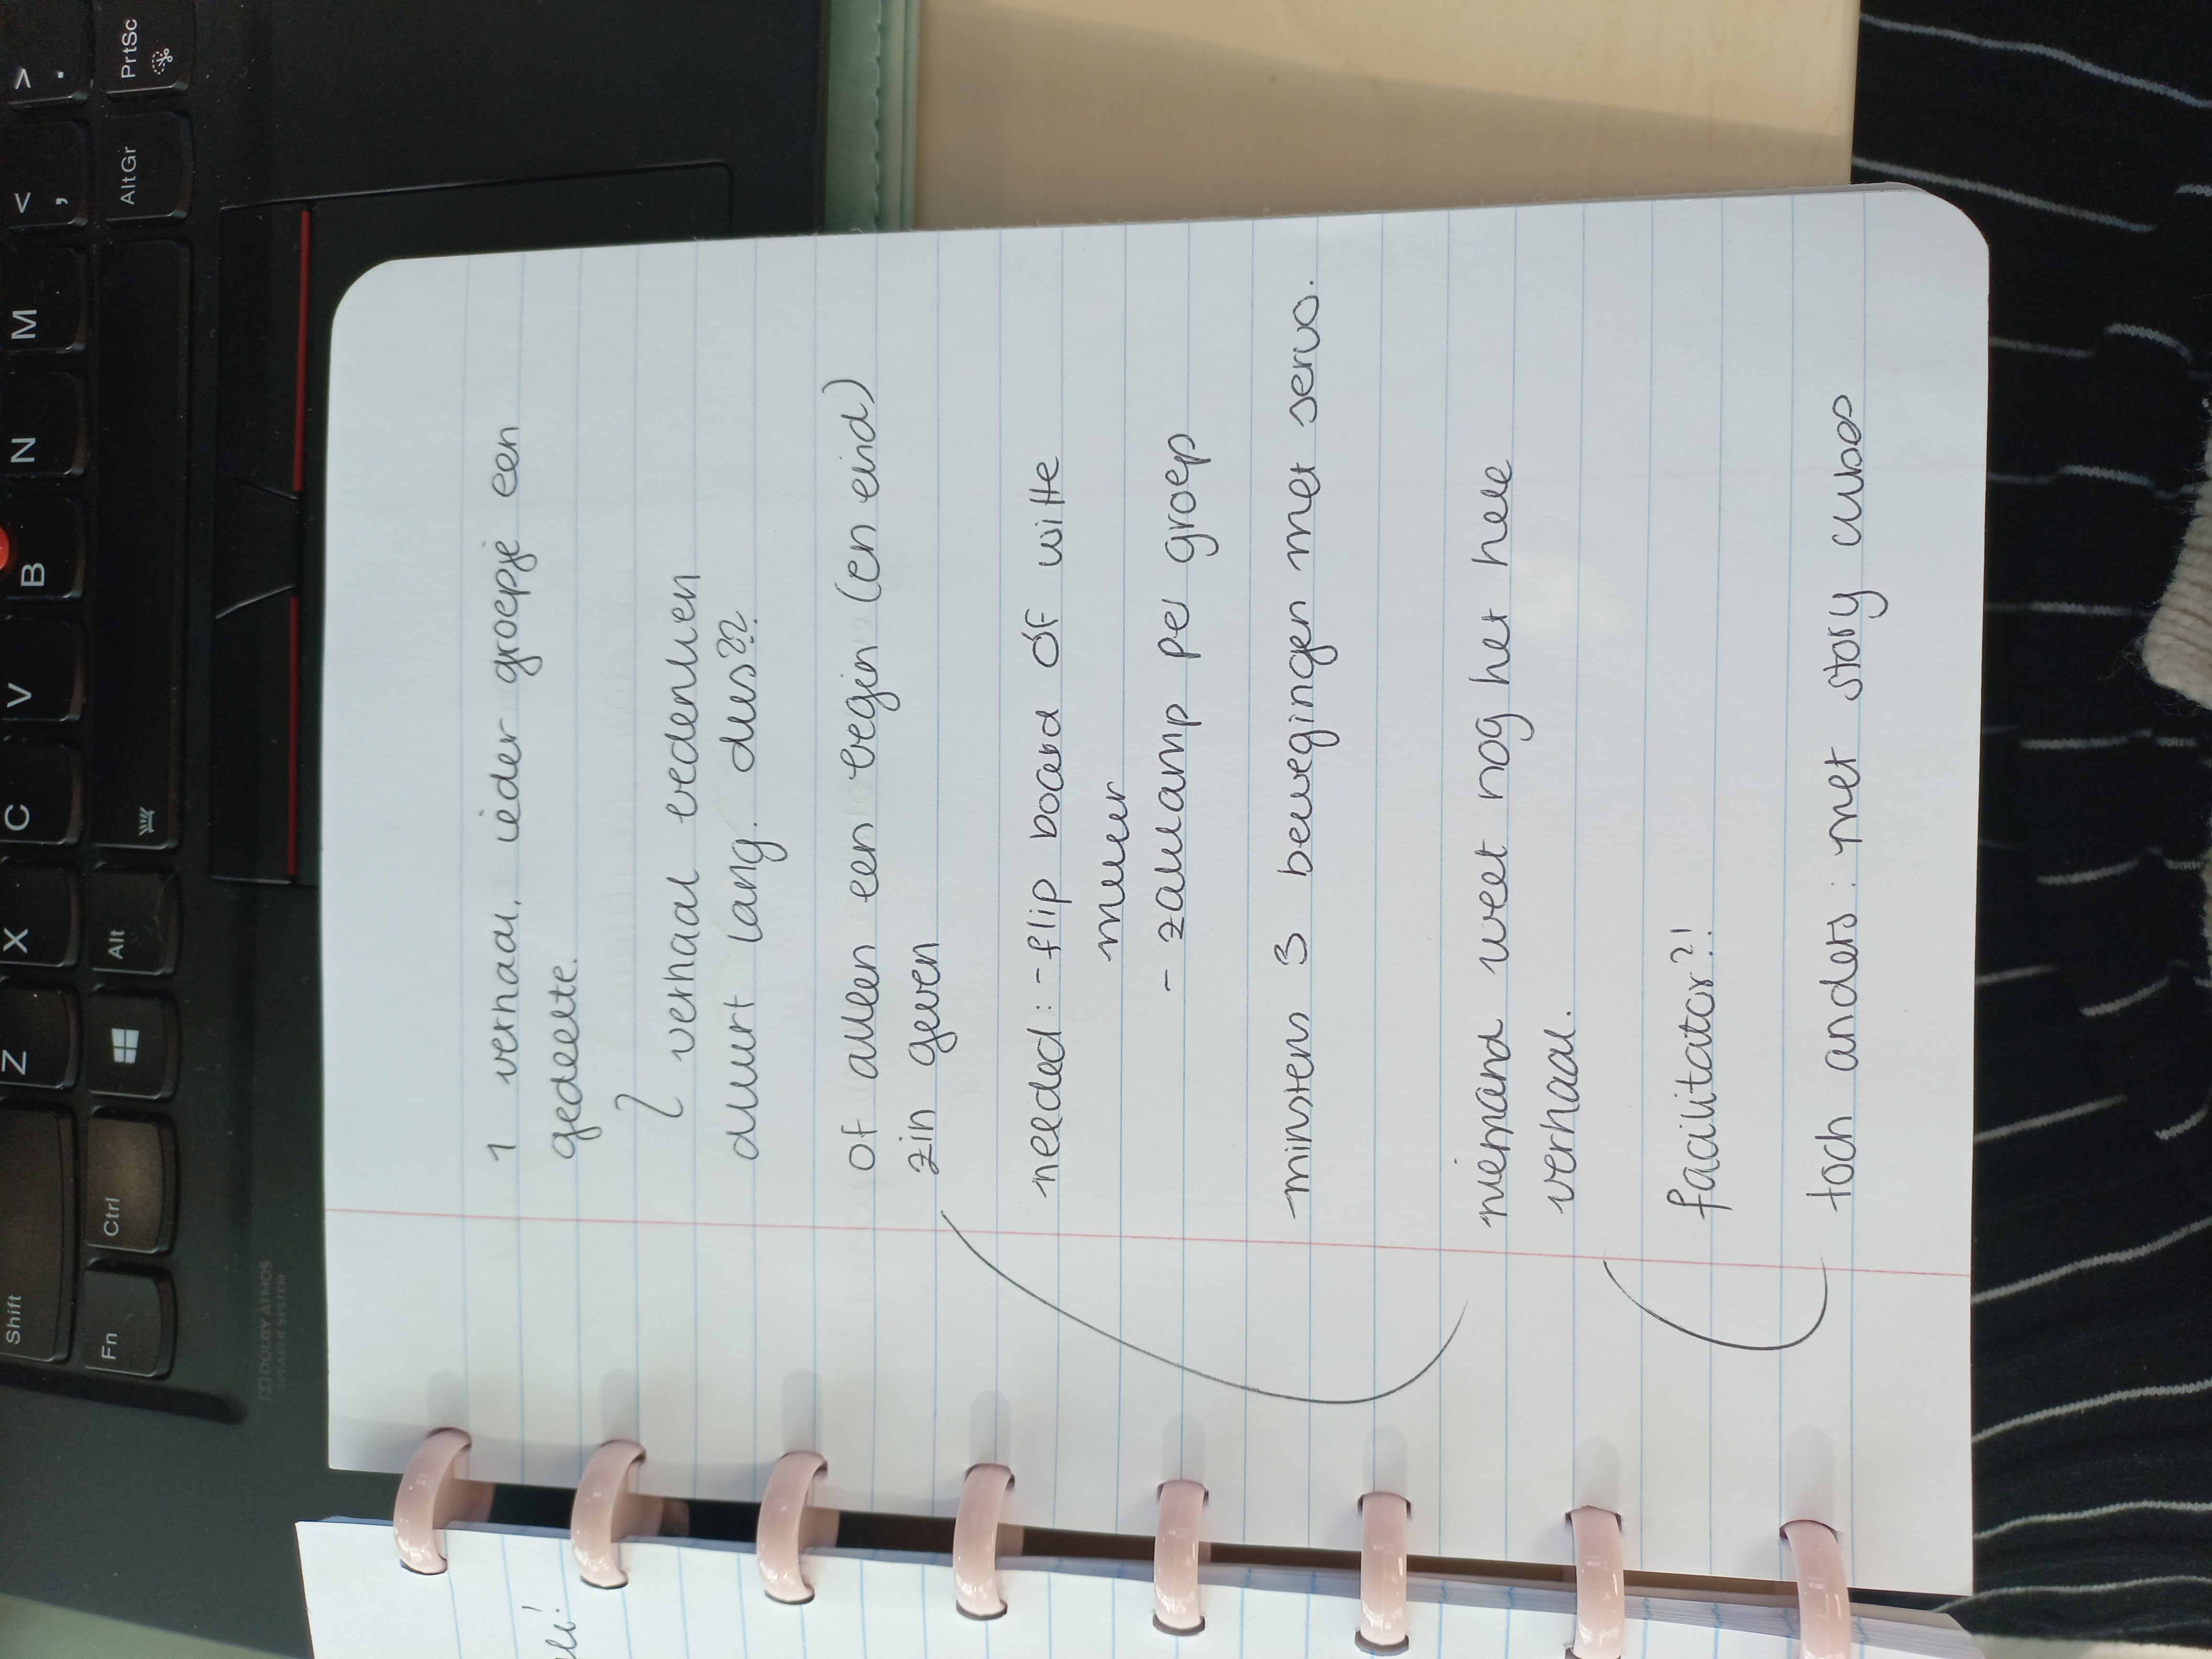 Shift Z X C V B N M < , > .
Fn Ctrl Alt AltGr PrtSc
DOLBY ATMOS
SPEAKER SYSTEM
1 verhaal, ieder groepje een
gedeelte.
verhaal bedenken
duurt lang. dus??
of alleen een begin (en eind)
zin geven
needed: - flip board óf witte
muur
- zaklamp per groep
minstens 3 bewegingen met servo.
niemand weet nog het hele
verhaal.
facilitator?!
toch anders: met story cubes